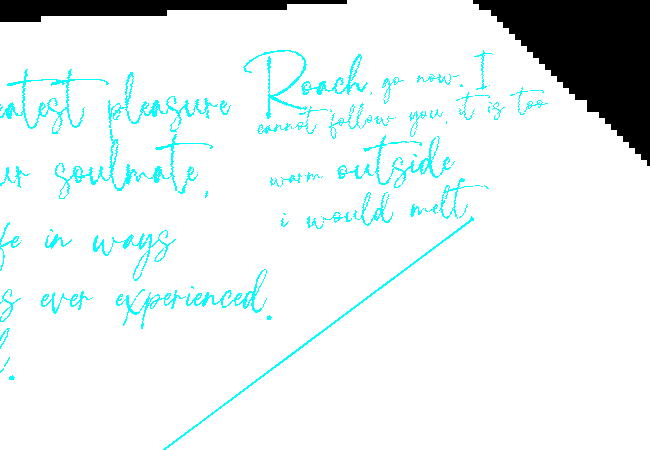 eatest pleasure
ur soulmate,
fe in ways
s ever experienced.
Roach, go now. I
cannot follow you, it is too
warm outside
i would melt